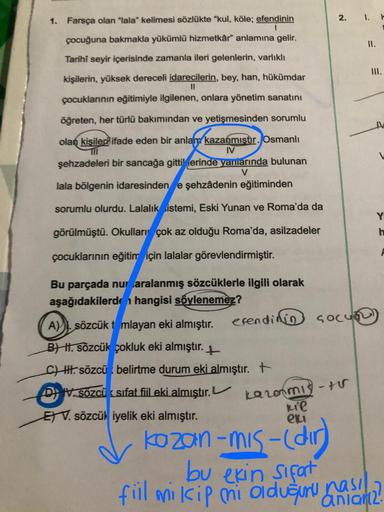 1. Farsça olan "lala" kelimesi sözlükte "kul, köle; efendinin
I
çocuğuna bakmakla yükümlü hizmetkâr" anlamına gelir.
Tarihî seyir içerisinde zamanla ileri gelenlerin, varlıklı
kişilerin, yüksek dereceli idarecilerin, bey, han, hükümdar
II
çocuklarının eğitimiyle ilgilenen, onlara yönetim sanatını
öğreten, her türlü bakımından ve yetişmesinden sorumlu
olan kişileri ifade eden bir anlam kazanmıştır. Osmanlı
III IV
şehzadeleri bir sancağa gittiklerinde yanlarında bulunan
V
lala bölgenin idaresinden ve şehzâdenin eğitiminden
sorumlu olurdu. Lalalık sistemi, Eski Yunan ve Roma'da da
görülmüştü. Okulların çok az olduğu Roma'da, asilzadeler
çocuklarının eğitimi için lalalar görevlendirmiştir.
Bu parçada numaralanmış sözcüklerle ilgili olarak
aşağıdakilerden hangisi söylenemez?
A) I. sözcük tamlayan eki almıştır. efendinin çocuğu
B) II. sözcük çokluk eki almıştır. +
C) III. sözcük belirtme durum eki almıştır. +
D) IV. sözcük sıfat fiil eki almıştır. kazanmış-tır
E) V. sözcük iyelik eki almıştır. kip eki
kazan-mış-(dır)
bu ekin sıfat
fiil mi kip mi olduğunu nasıl
anlarız?
2. I.
II.
III.
IV
V